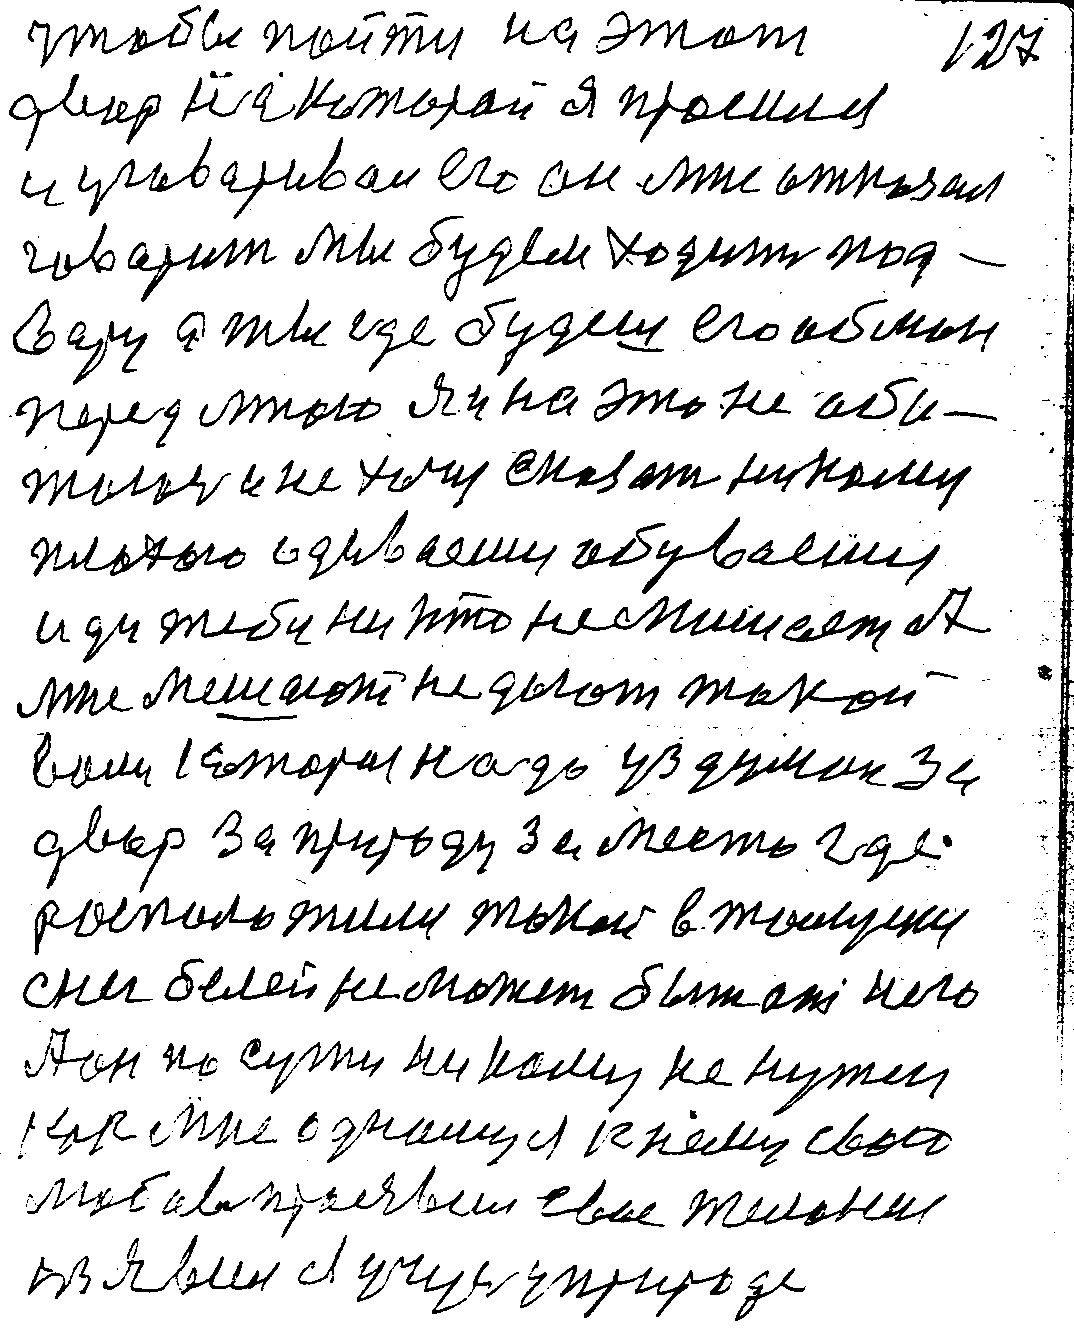 чтобы пойти на этот 127
двор на которай я просился
и уговаривал его он мне отказал
говарит мы будем ходить под –
вару а ты где будеш его обман
перед мною я и на это не оби –
жаюся и не хочу сказат никому
плохого одиваеши обуваеши
иди тебя никто не мишает А
мне мешают не дают такой
воли которы надо уздумок за
двор за природу за место где
росположили такой в
снег белей не может быт от него
А он по сути никому не нужен
как мне одному я к нему свою
любов проявил свое желание
изявил я учус у природе